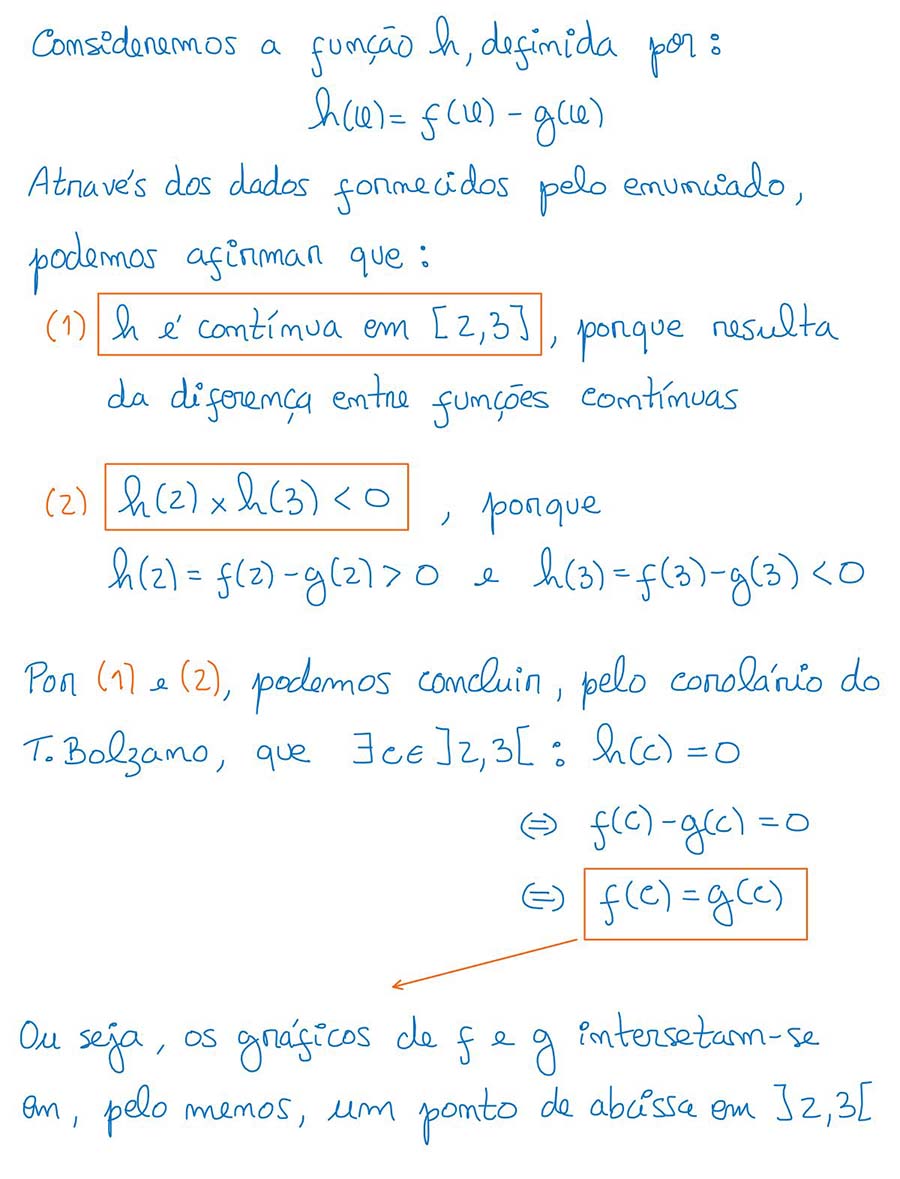 Consideremos a função h, definida por:
h(x) = f(x) - g(x)
Através dos dados fornecidos pelo enunciado,
podemos afirmar que:
(1) h é contínua em [2,3], porque resulta
da diferença entre funções contínuas
(2) h(2) × h(3) < 0, porque
h(2) = f(2) - g(2) > 0 e h(3) = f(3) - g(3) < 0
Por (1) e (2), podemos concluir, pelo corolário do
T. Bolzano, que ∃c∈]2,3[ : h(c) = 0
⇔ f(c) - g(c) = 0
⇔ f(c) = g(c)
Ou seja, os gráficos de f e g intersetam-se
em, pelo menos, um ponto de abcissa em ]2,3[